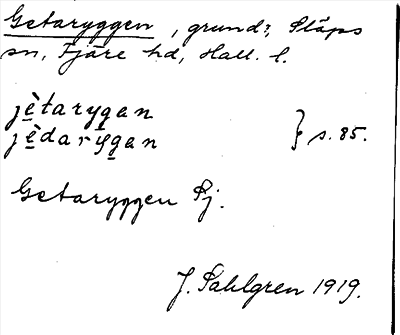 Getaryggen, grund?, Släps
sn, Fjäre hd, Hall. l.
jètarygan
jèdarygan } s. 85.
Getaryggen Rj.
J. Sahlgren 1919.